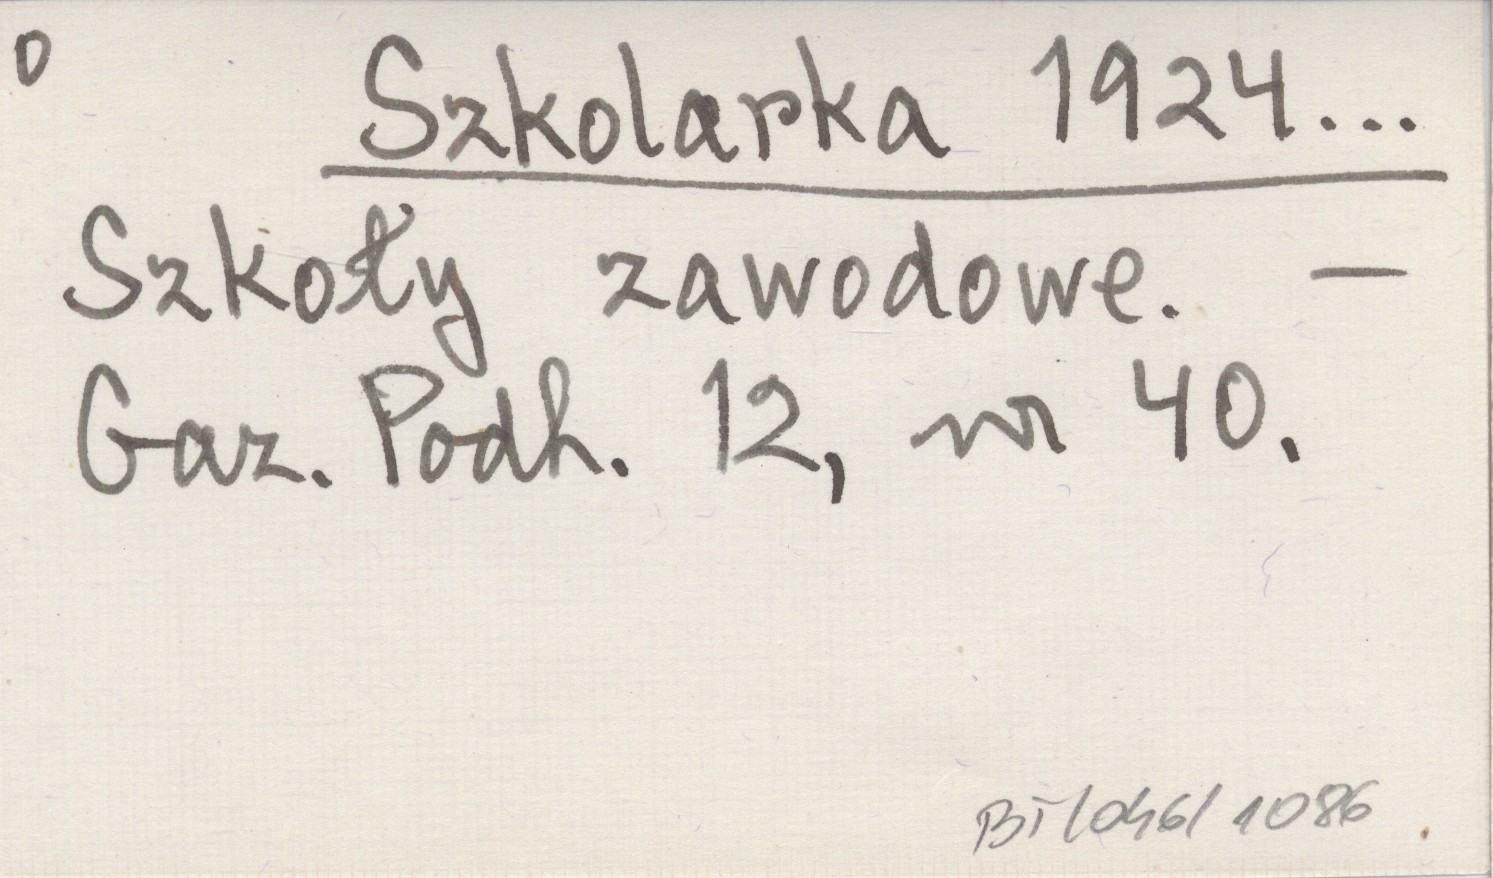 0 Szkolarka 1924...
Szkoły zawodowe. —
Gaz. Podh. 12, nr 40.
BT/046/1086